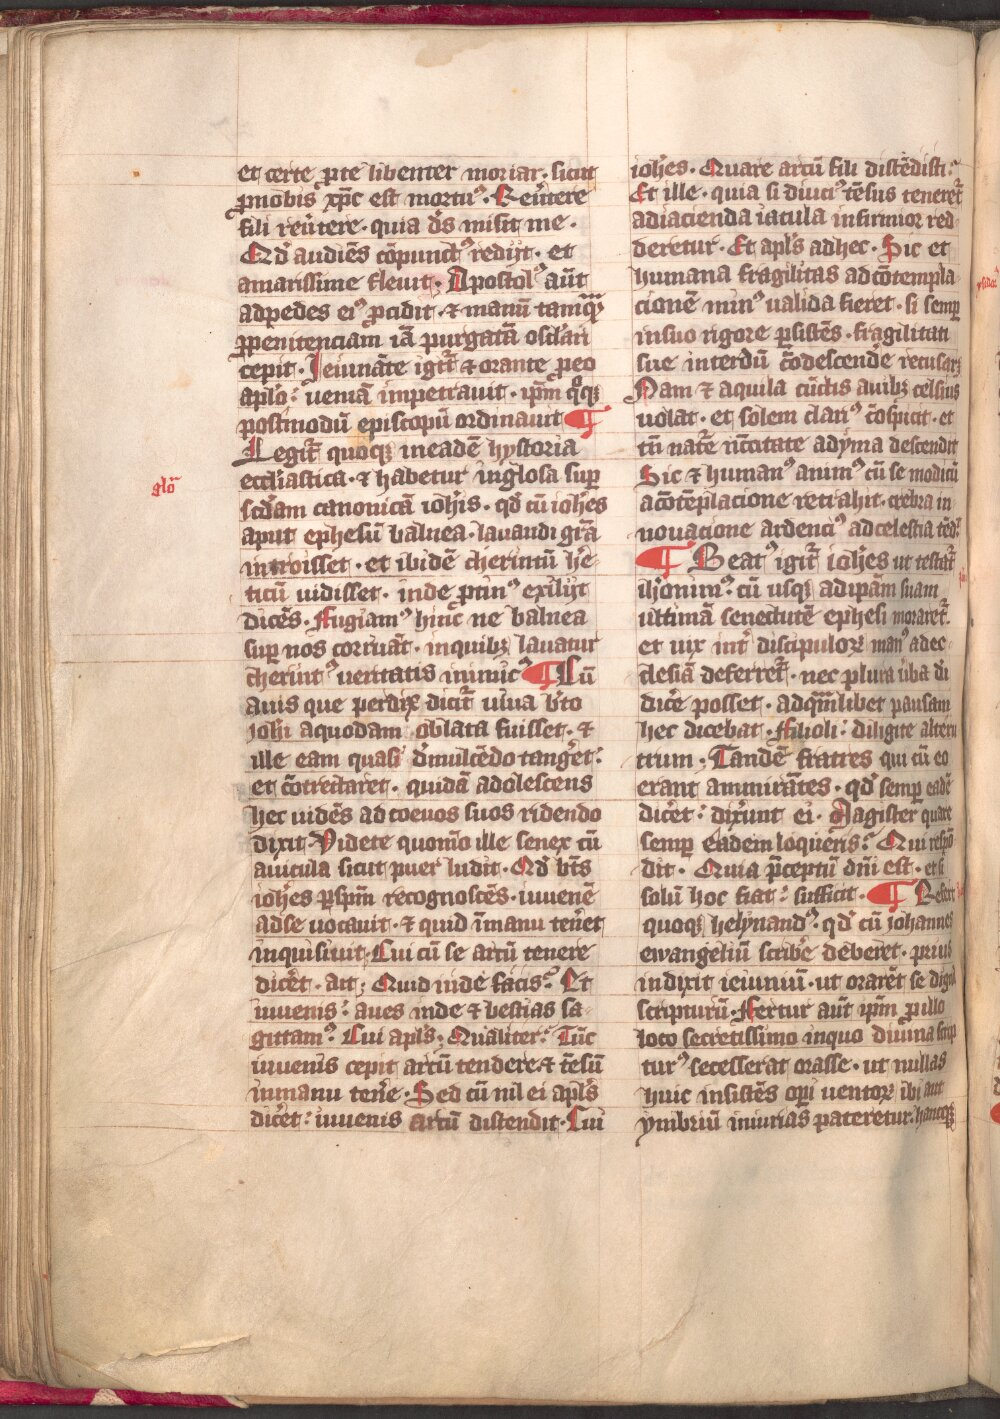 et certe ꝓ te libenter moriar · sicut
ꝓ nobis xp̄c est mortuꝰ · Reűtere
fili reűtere · quia dn̄s misit me ·
Qd̄ audiēs cōpunctꝰ redijt · et
amarissime fleuit · Apostolꝰ aūt
ad pedes eiꝰ ꝓcidit · & manū tamqͣm
ꝑ penitenciam iā purgatā osc̄lari
cepit · Ieiunāte igit̄ & orante ꝓ eo
apl̄o : ueniā impetrauit · ip̄m qͦqꝫ
postmodū episcopū ordinauit ¶
Legit̄ quoqꝫ in eadē hystoria
eccl̄iastica · & habetur in glosa suꝑ
scd̄am canonicā ioh̄is · qd̄ cū ioh̄es
glō
aput ephesū balnea · lauandi gr̄a
introisset · et ibidē cherintū he̅
ticū uidisset · inde ꝓtinꝰ exilijt
dicēs · Fugiamꝰ hinc ne balnea
suꝑ nos corruāt · in quibꝫ lauatur
cherintꝰ ueritatis inimicꝰ ¶ Cū
auis que perdix dicit̄ uiua b̄to
ioh̄i a quodam oblata fuisset · &
ille eam quasi d̄mulcēdo tanget̄ :
et cōtrectaret · quidā adolescens
hec uidēs ad coeuos suos ridendo
dixit · Videte quom̄o ille senex cū
auicula sicut puer ludit · Qd̄ b̄ts
ioh̄es ꝑ sp̄m recognoscēs · iuuenē
ad se uocauit · & quid ī manu teneret
inquisiuit · Cui cū se arcū tenere
dicet̄ · ait ; Quid inde facis : Et
iuuenis : aues inde & bestias sa-
gittamꝰ · Cui apl̄s ; Qualiter : Tūc
iuuenis cepit arcū tendere & tēsū
in manu tene̅ · Sed cū nil ei apl̄s
dicet̄ : iuuenis arcū distendit · Cui
ioh̄es · Quare arcū fili distēdisti :
Et ille · quia si diuciꝰ tēsus teneret̄
ad iacienda iacula infirmior red-
deretur · Et apl̄s ad hec · Sic et
humana fragilitas ad cōtempla
cionē minꝰ ualida fieret · si semꝑ
in suo rigore ꝑsistēs · fragilitati
sue interdū cōdescende̅ recusarꝫ
Nam & aquila cūctis auibꝫ celsius
uolat · et solem clariꝰ cōspicit · et
tn̄ nat̄e nc̄citate ad yma descendit
Sic & humanꝰ animꝰ cū se modicū
a cōtēplacione retrahit · crebra in-
nouacione ardenciꝰ ad celestia tēd̄ :
¶ Beatꝰ igit̄ ioh̄es ut testat̄
ih̄onimꝰ : cū usqꝫ ad ip̄am suam
ultimā senectutē ephesi moraret̄
et uix int̄ discipuloꝝ manꝰ ad ec-
clesiā deferret̄ · nec plura űba di
dice̅ posset · ad qͣmlibet pausam
hec dicebat · Filioli : diligite alteru
trum ; Tandē fratres qui cū eo
erant ammirātes · qd̄ semꝑ eadē
dicet̄ : dixunt ei · Magister quare
semꝑ eadem loqueris : Qui respō
dit · Quia p̄ceptū dn̄i est · et si
solū hoc fiat : sufficit · ¶ Refert
quoqꝫ helynandꝰ · qd̄ cū johannes
ewangeliū scribe̅ deberet · prius
indixit ieiuniū · ut orarēt se digna
scripturū · Fertur aūt ip̄m ꝓ illo
loco secretissimo in quo diuina scrip
turꝰ secesserat orasse · ut nullas
huic insistēs oꝑi uentoꝝ ibi aut
ymbriū iniurias pateretur · hancqꝫ